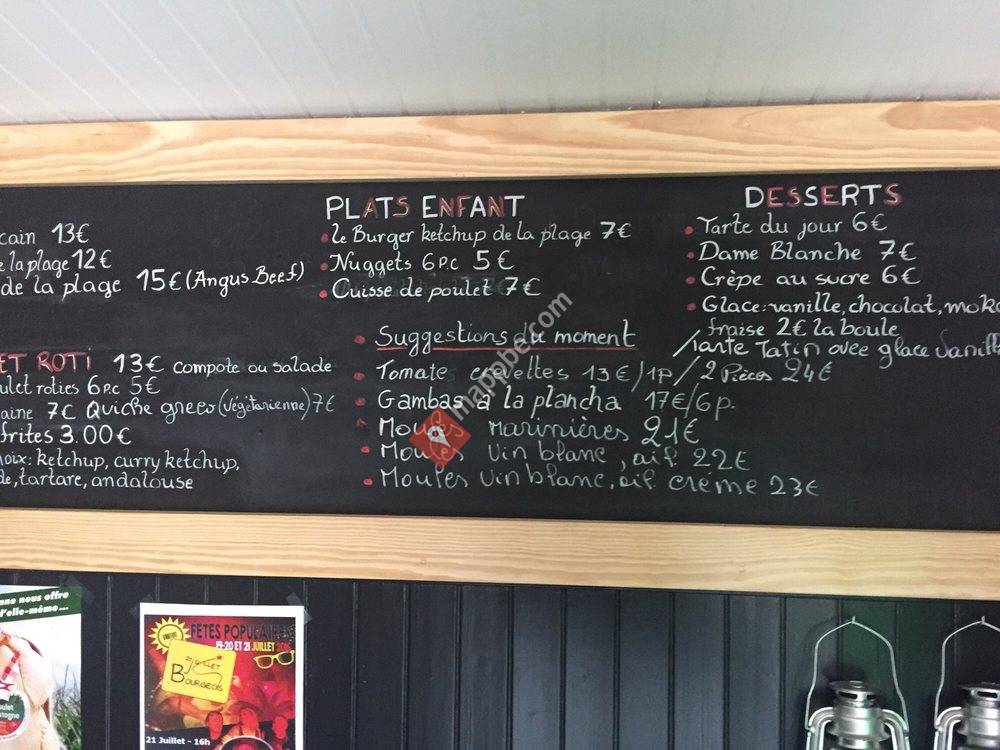 cain 13€
e la plage 12€
de la plage 15€ (Angus Beef)
ET ROTI 13€ compote ou salade
ulet roties 6 pc 5€
aine 7€ Quiche greco (végétarienne) 7€
frites 3.00€
oix: ketchup, curry ketchup,
de, tartare, andalouse
PLATS ENFANT
Le Burger ketchup de la plage 7€
Nuggets 6 pc 5€
Cuisse de poulet 7€
Suggestions du moment
Tomate crevettes 13€/1p / 2 Pièces 24€
Gambas à la plancha 17€/6p.
Moules marinières 21€
Moules vin blanc, ail 22€
Moules vin blanc, ail crème 23€
DESSERTS
Tarte du jour 6€
Dame Blanche 7€
Crèpe au sucre 6€
Glace: vanille, chocolat, moka
fraise 2€ la boule
Tarte Tatin avec glace vanill
mappbe.com
nne nous offre
d'elle-même...
oulet
etagne
FETES POPULAIRES
19-20 ET 21 JUILLET
21 JUILLET
BOURGEOIS
21 Juillet - 16h